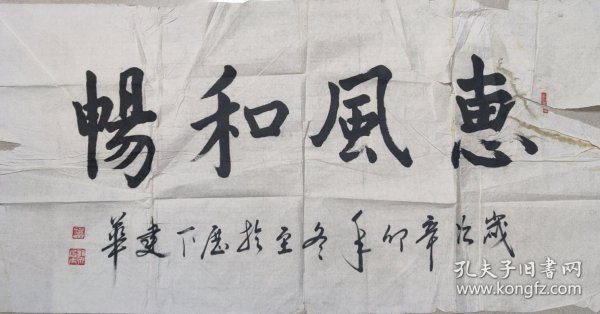 惠風和暢
歲次辛卯年冬至於歷下建華
孔夫子旧书网
www.kongfz.com